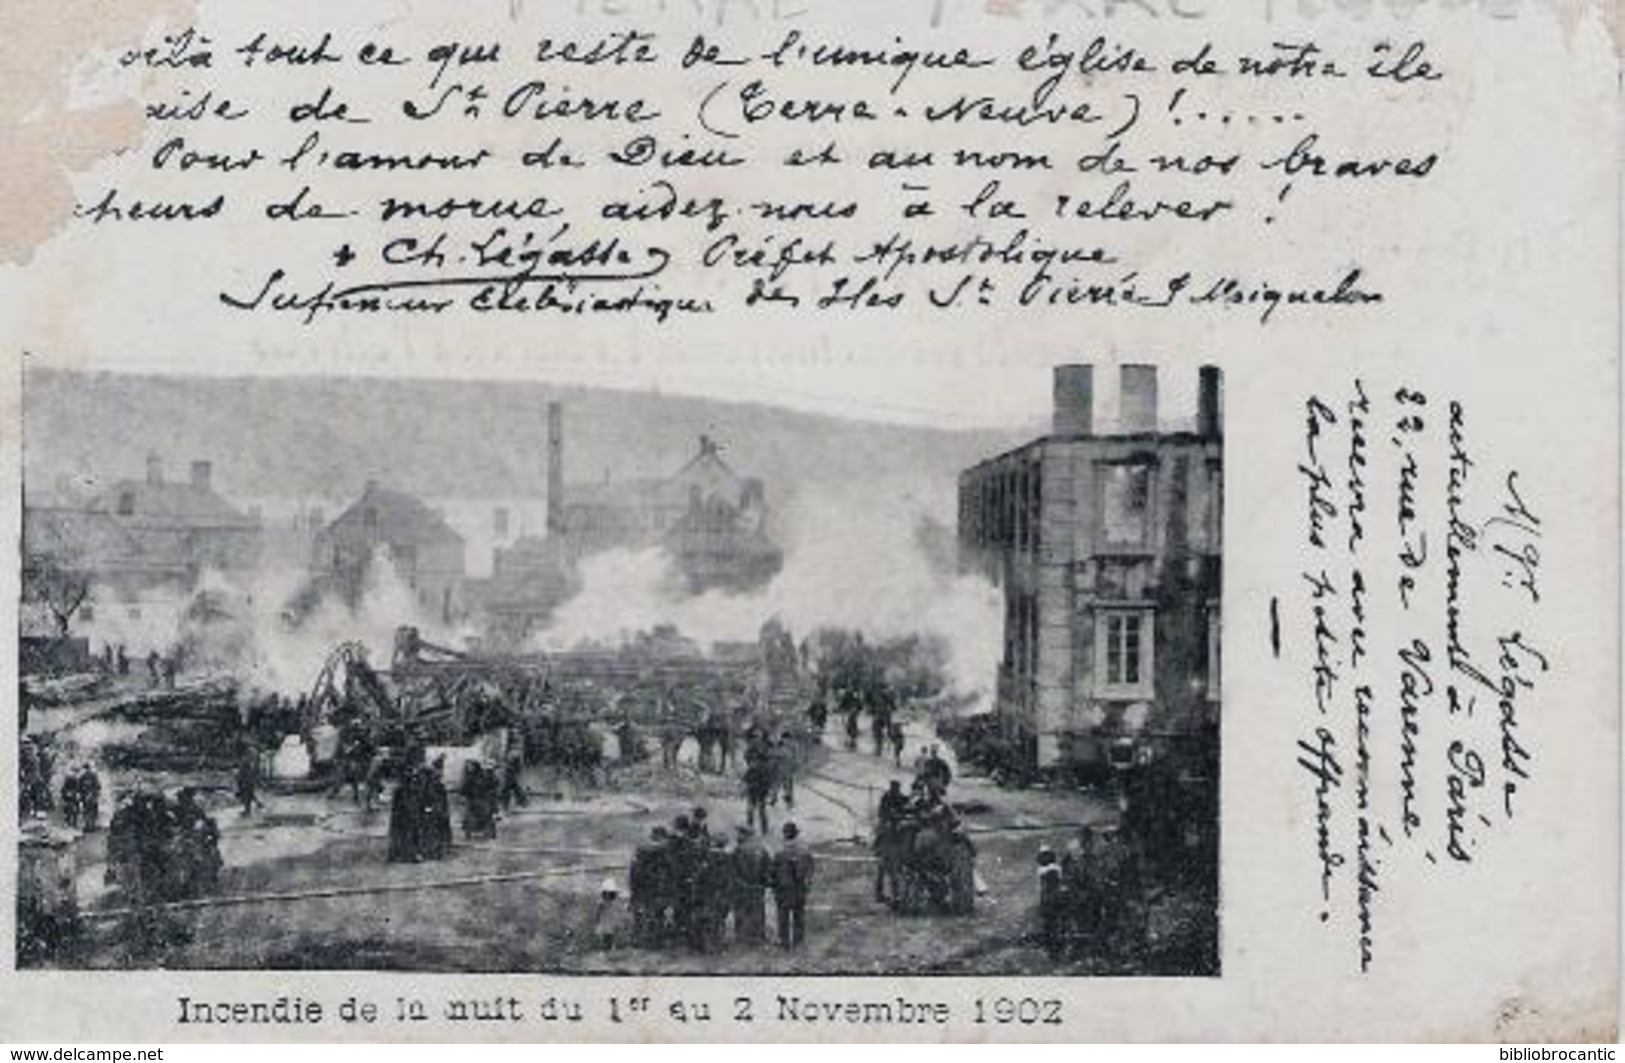 oilà tout ce qui reste de l'unique église de nôtre île
aise de St Pierre (Terre-Neuve) !......
Pour l'amour de Dieu et au nom de nos braves
cheurs de morue, aidez-nous à la relever !
+ Ch. Légasse, Préfet Apostolique
Supérieur Ecclésiastique des Iles St Pierre & Miquelon
Mgr Légasse
actuellement à Paris
22, rue de Varenne
recevra avec reconnaissance
la plus petite offrande.
Incendie de la nuit du 1er au 2 Novembre 1902
www.delcampe.net
bibliobrocantic